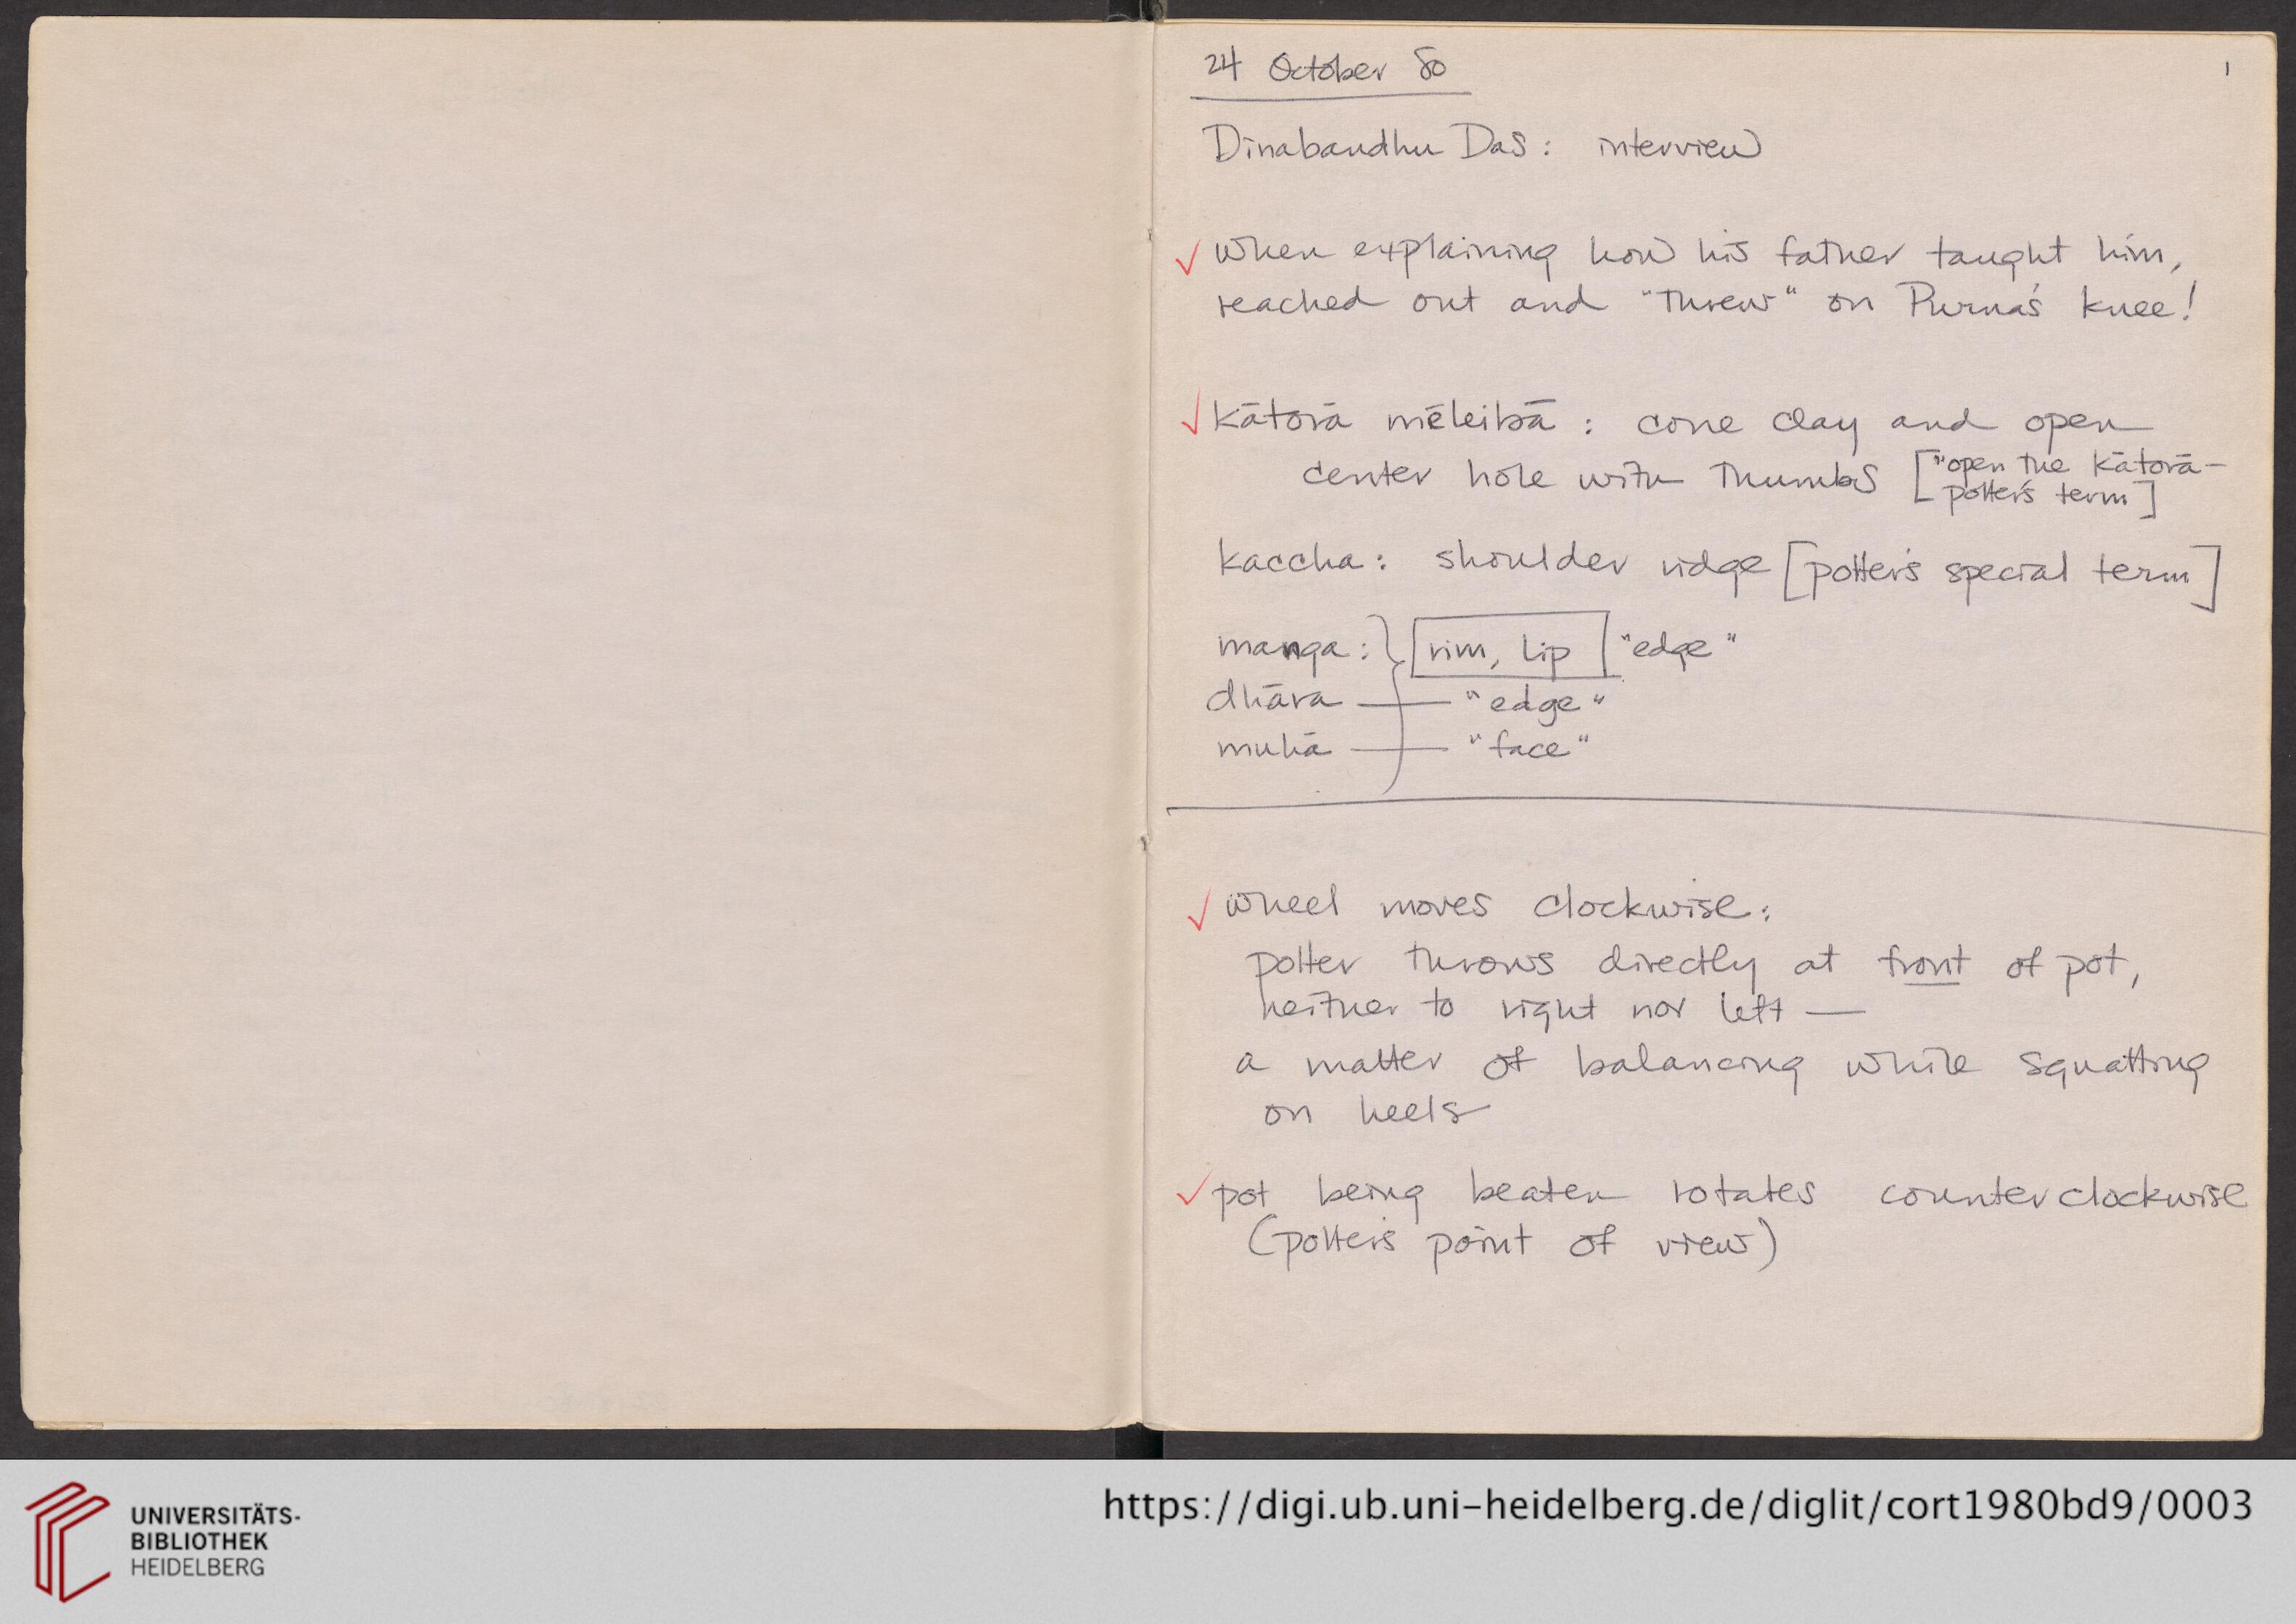 24 October 80
1
Dinabandhu Das: interview
✓ When explaining how his father taught him,
reached out and "threw" on Purna's knee!
✓ kātorā mēleibā : cone clay and open
center hole with thumbs ["open the kātorā-
potter's term]
kaccha: shoulder ridge [potter's special term]
manga: } rim, lip "edge"
dhāra — "edge"
muhā — "face"
✓ wheel moves clockwise:
potter throws directly at front of pot,
neither to right nor left —
a matter of balancing while squatting
on heels
✓ pot being beaten rotates counterclockwise
(potter's point of view)
UNIVERSITÄTS-
BIBLIOTHEK
HEIDELBERG
https://digi.ub.uni-heidelberg.de/diglit/cort1980bd9/0003